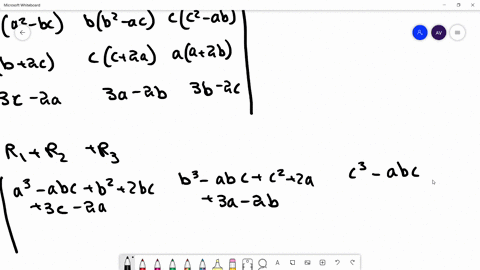 Microsoft Whiteboard
(a²-bc) b(b²-ac) c(c²-ab)
AV
b+2c) c(c+2a) a(a+2b)
3c-2a 3a-2b 3b-2c
R₁+R₂ +R₃
a³-abc+b²+2bc b³-abc+c²+2a c³-abc
+3c-2a +3a-2b